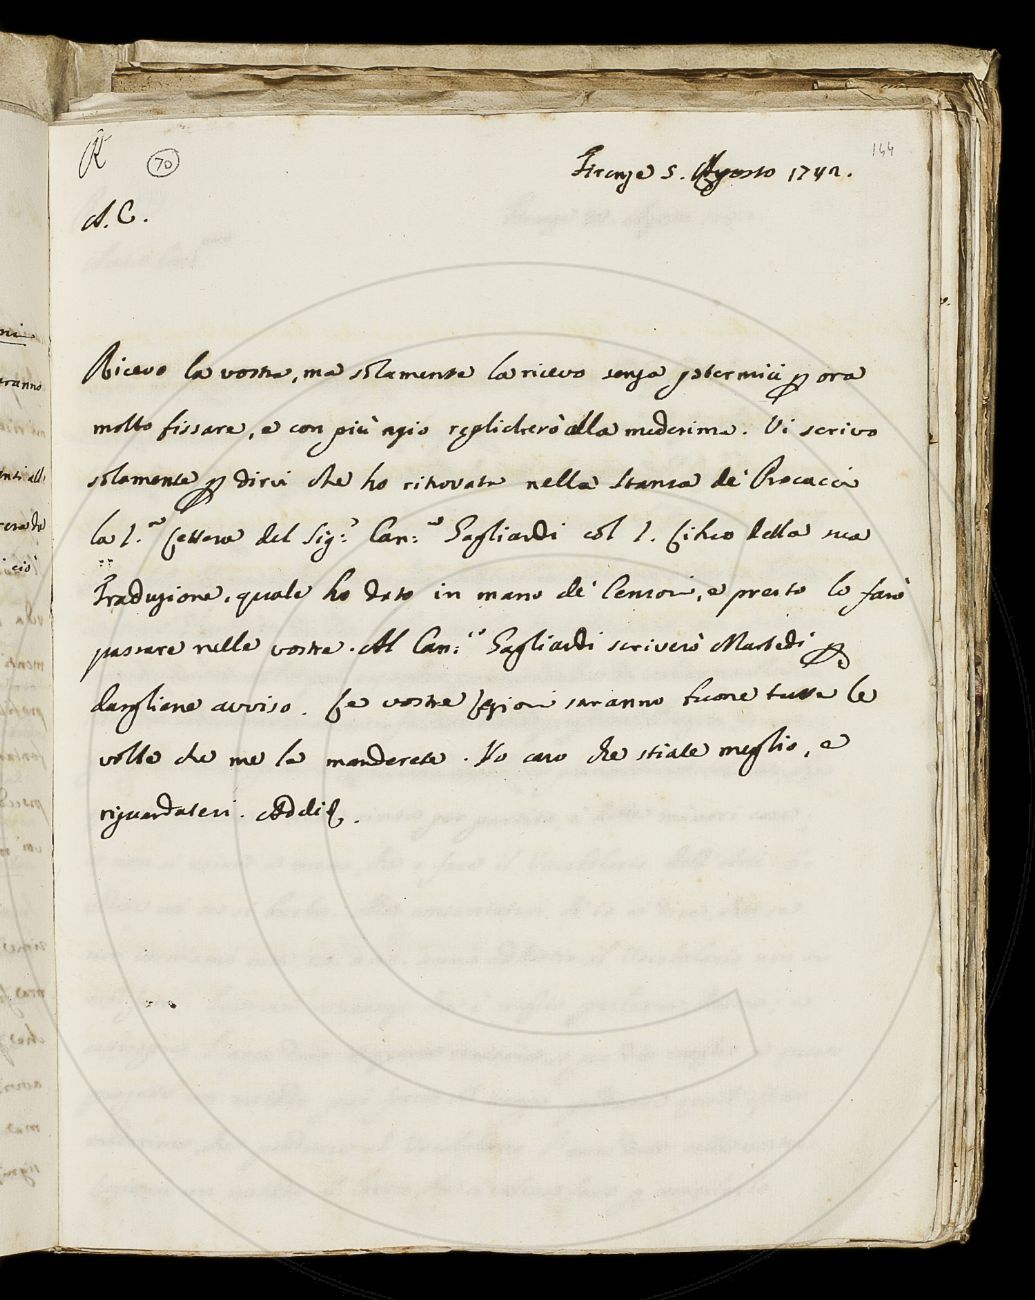 R 70
144
Firenze 5. Agosto 1742.
A. C.
Ricevo la vostra, ma solamente la ricevo senza potermici p ora
molto fissare, e con più agio replicherò alla medesima. Vi scrivo
solamente p dirvi che ho ritrovata nella stanza de' Procacci
la Lettera del Sig.r Can.co Gagliardi col Libro della sua
Traduzione, quale ho dato in mano de' Censori, e presto lo farò
passare nelle vostre. Al Can.co Gagliardi scriverò Martedì p
dargliene avviso. Le vostre Lezioni saranno buone tutte le
volte che me le manderete. Ho caro che stiate meglio, e
riguardatevi. Addio.